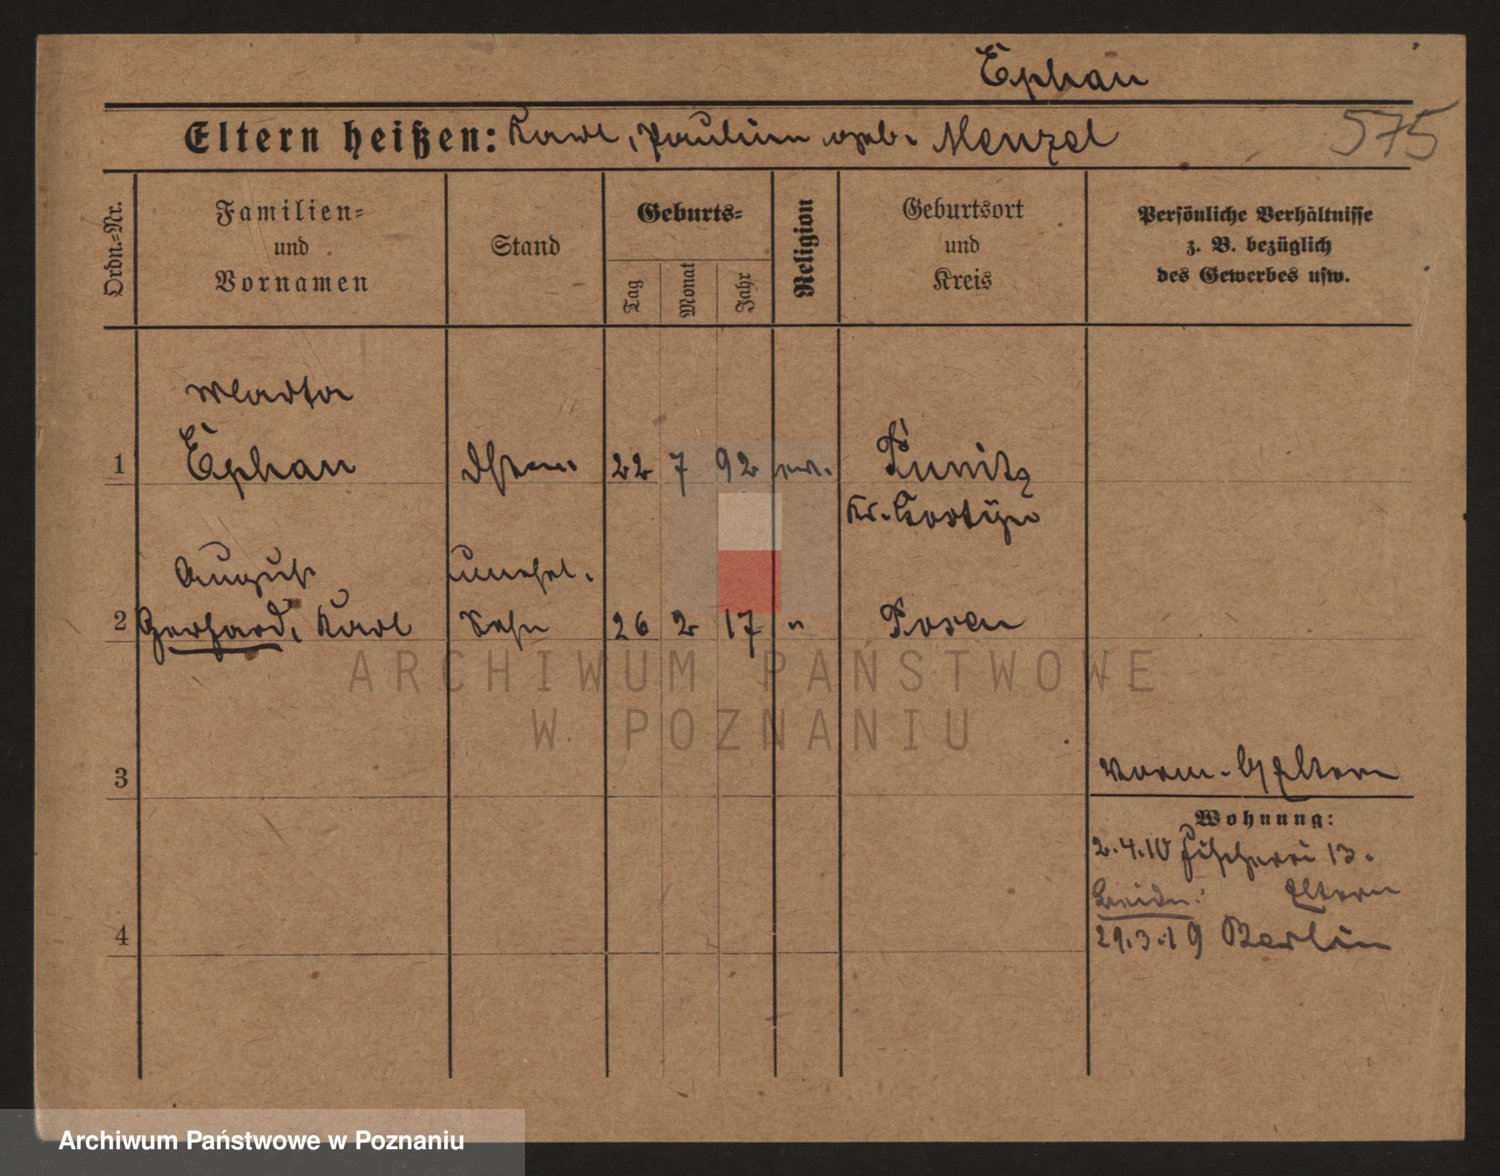 Ephan
Eltern heißen: Karl, Pauline geb. Menzel
575
Ordn.=Nr.
Familien=
und
Vornamen
Stand
Geburts=
Tag
Monat
Jahr
Religion
Geburtsort
und
Kreis
Persönliche Verhältnisse
z. B. bezüglich
des Gewerbes usw.
Marta
1 Ephan 22 7 92 ev. Punitz
Kr. Gostyn
August unehel.
2 Gerhard, Karl Sohn 26 2 17 " Posen
ARCHIWUM PAŃSTWOWE
W POZNANIU
3
Vorm. Eltern
Wohnung:
2.4.10 Fischerei 13.
Beide: Eltern
4
29.3.19 Berlin
Archiwum Państwowe w Poznaniu